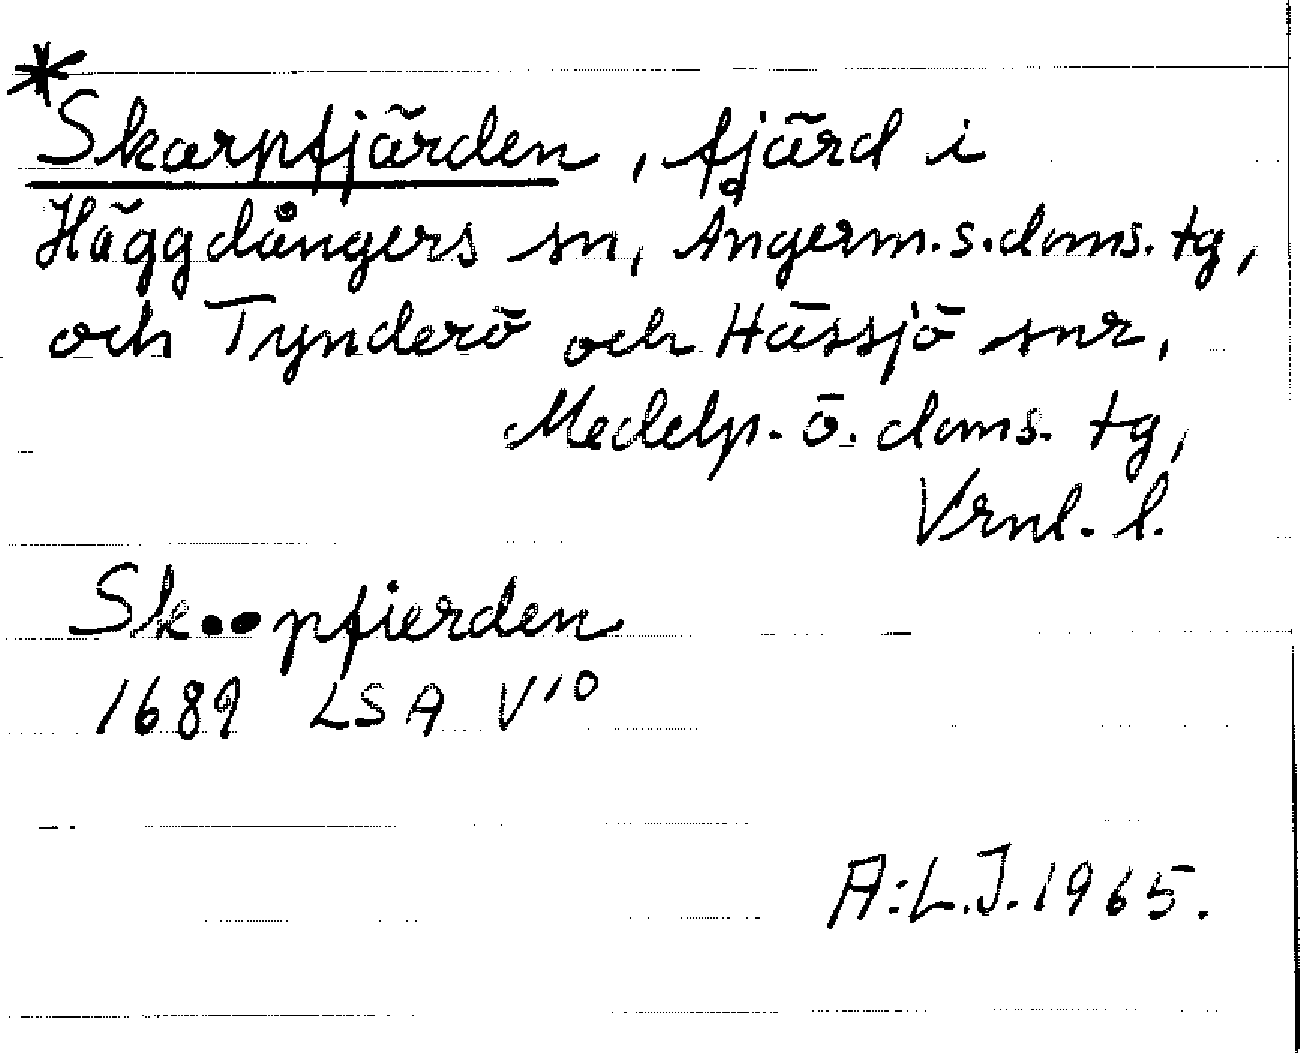 *
Skarpfjärden, fjärd i
Häggdångers sn, Ångerm. s. doms. tg,
och Tynderö och Hässjö snr,
Medelp. ö. doms. tg,
Vrnl. l.
Sk••pfierden
1689 LSA V10
A:L.J. 1965.